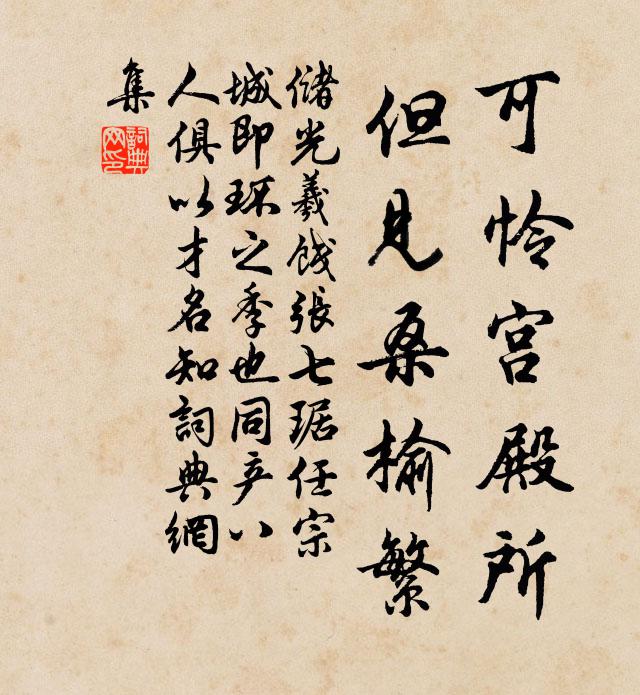 可怜宫殿所
但見桑榆繁
儲光羲餞張七琚任宗
城即环之季也同产八
人俱以才名知詞典網
集
詞典網印